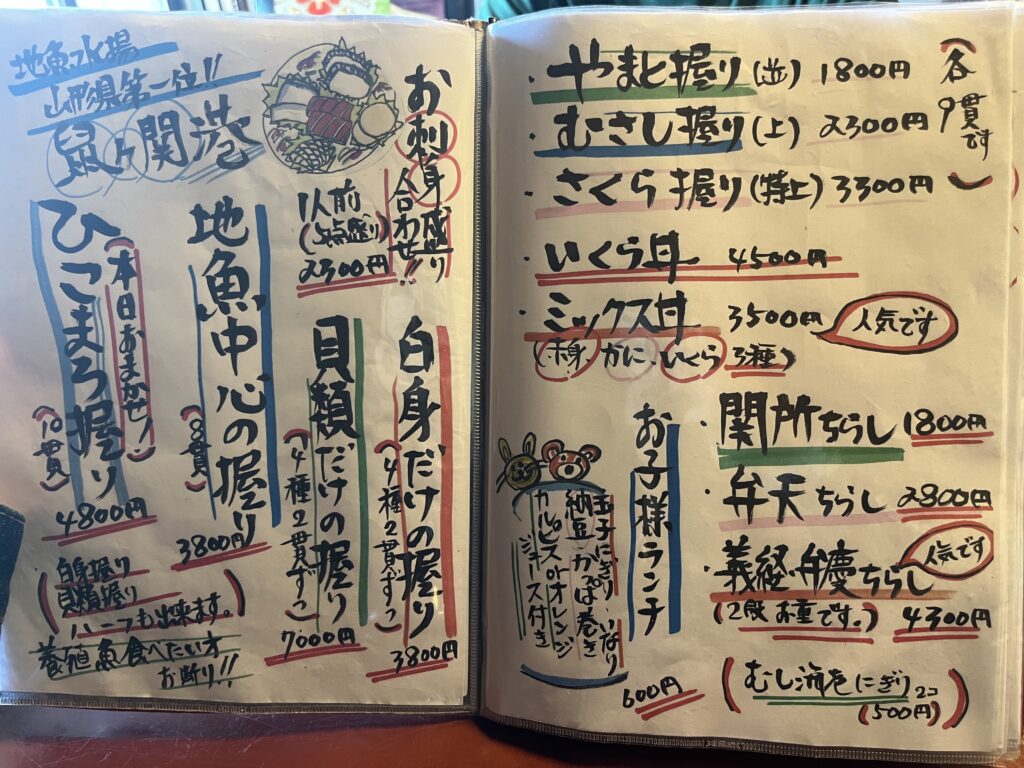 地魚水揚
山形県第一位!!
鼠ヶ関港
お刺身盛り
合わせ!!
1人前
(5点盛り)
2300円
白身だけの握り
(4種2貫ずつ)
3800円
貝類だけの握り
(4種2貫ずつ)
7000円
地魚中心の握り
(8貫)
3800円
ひこまろ握り
(本日おまかせ!)
(10貫)
4800円
(白身握り
貝類握り
ハーフも出来ます。)
養殖魚食べたい方
お断り!!
・やまと握り(並) 1800円
・むさし握り(上) 2300円
・さくら握り(特上) 3300円
(各9貫です)
・いくら丼 4500円
・ミックス丼 3500円
人気です
(赤身、かに、いくら 3種)
・関所ちらし 1800円
・弁天ちらし 2800円
・義経・弁慶ちらし
人気です
(2段お重です。) 4300円
(むし海老にぎり2コ
(500円))
お子様ランチ
玉子にぎり・いなり
納豆・かっぱ巻き
カルピスorオレンジ
ジュース付き
600円